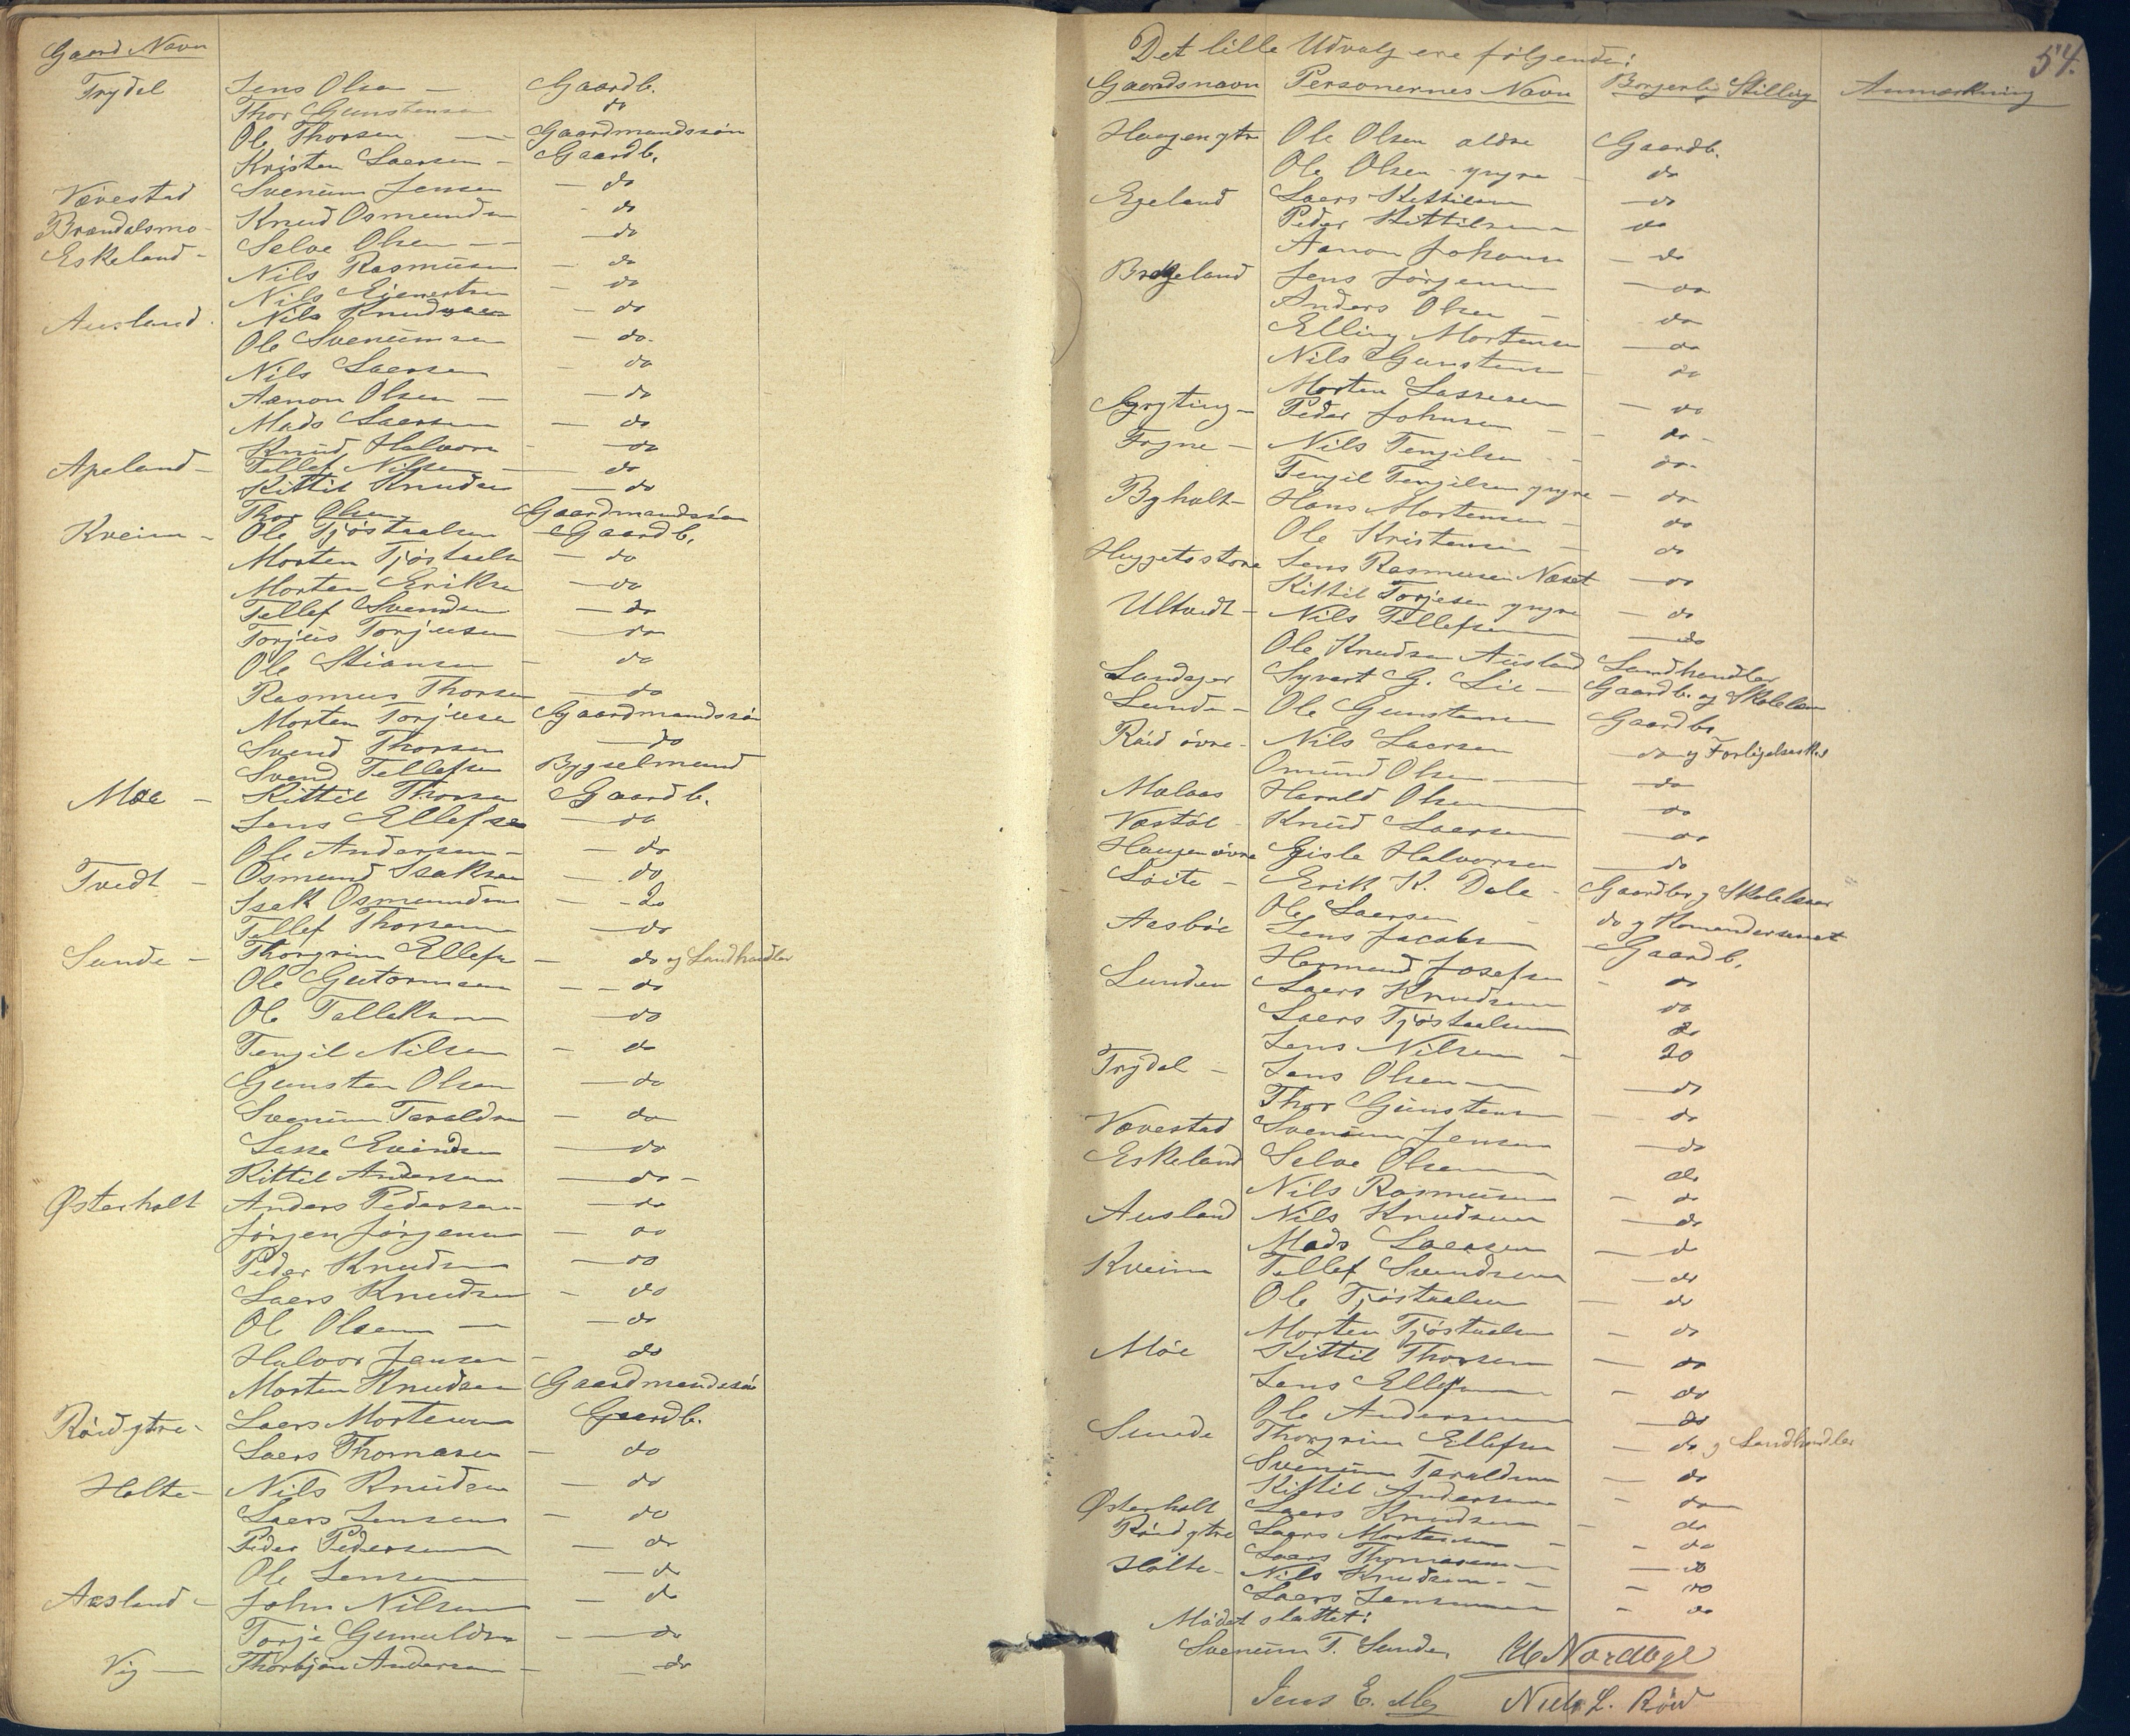 Gaard Navn
Trydal Jens Olsen — Gaardb.
Thor Gunstensen do
Ole Thorsen — Gaardmandssøn
Kristen Laersen — Gaardb.
Vævestad Svenum Jensen — do
Brandalsmo - Knud Osmundsen - do
Eskeland - Selve Olsen — — do
Nils Rasmusen — do
Nils Eienertsen — do
Ausland. Nils Knudsen — do
Ole Svenumsen — do.
Nils Laersen — do
Aanon Olsen — — do
Mads Laersen — do
Knud Halvors - — do
Apeland — Tellef Nilsen — do
Kittil Knudsen — do
Thor Olsen Gaardmandssøn
Kveim — Ole Tjøstaalsen — Gaardb.
Morten Tjøstaalsen — do
Morten Eriksen — do
Tellef Svendsen — do
Torjus Torjusen — do
Ole Stiansen — do
Rasmus Thorsen — do
Morten Torjusen Gaardmandssøn
Svend Thorsen — do
Svend Tellefsen Bygselmand
Moe — Kittil Thorsen Gaardb.
Jens Ellefsen — do
Ole Andersen — — do
Tvedt — Osmund Isaksen — do
Isak Osmundsen — do
Tellef Thorsen — do
Sunde — Thorgrim Ellefsen — do og Landhandler
Ole Gutormsen — — do
Ole Tallaksen — do
Tengil Nilsen — do
Gunsten Olsen — do
Svenum Taraldsen — do
Lasse Evindsen — do
Kittil Andersen — do -
Østerholt Anders Pedersen — do
Jørgen Jørgensen — do
Peder Knudsen — do
Laers Knudsen — do
Ole Olsen — — do
Halvor Jensen — do
Morten Knudsen Gaardmandssøn
Røid ytre - Laers Mortensen Gaardb.
Laers Thomasen — do
Holte — Nils Knudsen — do
Laers Jensen — do
Peder Pedersen — do
Ole Jensen — do
Aasland — John Nilsen — do
Torje Gunuldsen — do
Vig — Thorbjøn Andersen — do
54.
Det lille Udvalg ere følgende:
Gaardsnavn Personernes Navn Borgerlig Stilling Anmærkning
Haugen ytre Ole Olsen ældre Gaardb.
Ole Olsen yngre — do
Egeland Laers Kittilsen — do
Peder Kittilsen do
Aanon Johnsen — do
Brekeland Jens Jørgensen — do
Anders Olsen — do
Elling Mortensen — do
Nils Gunstensen — do
Morten Lassesen — do
Gryting — Peder Johnsen — do -
Fogne — Nils Tengilsen — do -
Tengil Tengilsen yngre — do
Byholt — Hans Mortensen — do
Ole Kristensen — do
Jens Rasmusen Næset — do
Kittil Torjesen yngre — do
Ultvedt — Nils Tellefsen — do
Ole Knudsen Ausland Landhandler
Syvert G. Lie — Gaardb. og Skolelærer
Lunde — Ole Gunstensen Gaardbr.
Røid øvre - Nils Laersen do og Forligelseskos
Omund Olsen — do
Molaas Harald Olsen — do
Vastøl Knud Laersen — do
Haugen øvre Gisle Halvorsen — do
Løite — Erik K. Dale - Gaardbr og Skolelærer
Ole Laersen - do og
Aasbøe Jens Jacobsen — Gaardb.
Hermund Josefsen - do
Lunden Laers Knudsen do
Laers Tjøstaalsen do
Jens Nilsen — do
Trydal — Jens Olsen — do
Thor Gunstensen — do
Vævestad Svenum Jensen — do
Eskeland Selve Olsen do
Nils Rasmusen — do
Ausland Nils Knudsen — do
Mads Laersen — do
Kveim Tellef Svendsen — do
Ole Tjøstaalsen — do
Morten Tjøstaalsen — do
Møe Kittil Thorsen — do
Jens Ellefsen — do
Ole Andersen — do
Sunde Thorgrim Ellefsen — do og Landhandler
Svenum Taraldsen — do
Kittil Andersen — do
Østerholt Laers Knudsen — do
Røid ytre Laers Mortensen — do
Laers Thomasen — do
Holte — Nils Knudsen — do
Laers Jensen — do
Mødet sluttet:
Svenum T. Sunde
Jens E. Niels L. Røid